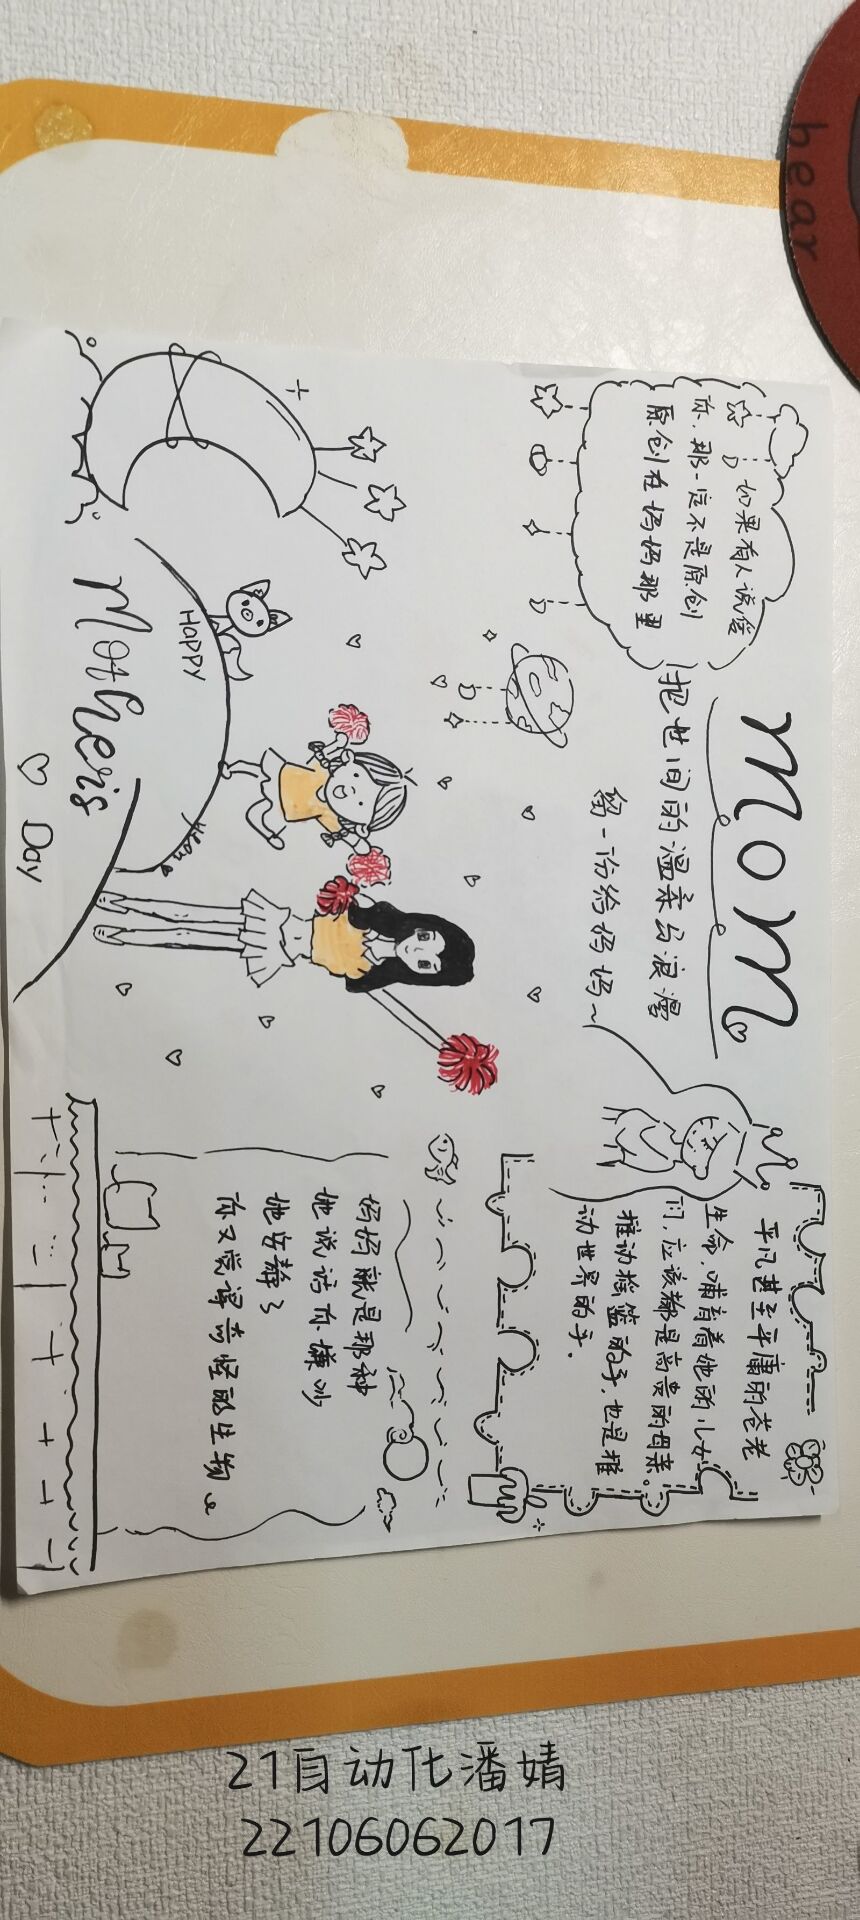 hear
如果有人说爱
你，那一定不是原创
原创在妈妈那里
mom
把世间的温柔与浪漫
留一份给妈妈~
HAPPY
Mother's
Day
平凡甚至平庸的苍老
生命，哺育着她的儿女
们，应该都是高贵的母亲。
推动摇篮的手，也是推
动世界的手．
妈妈就是那种
她说话你嫌吵
她安静了
你又觉得奇怪的生物
21自动化潘婧
22106062017